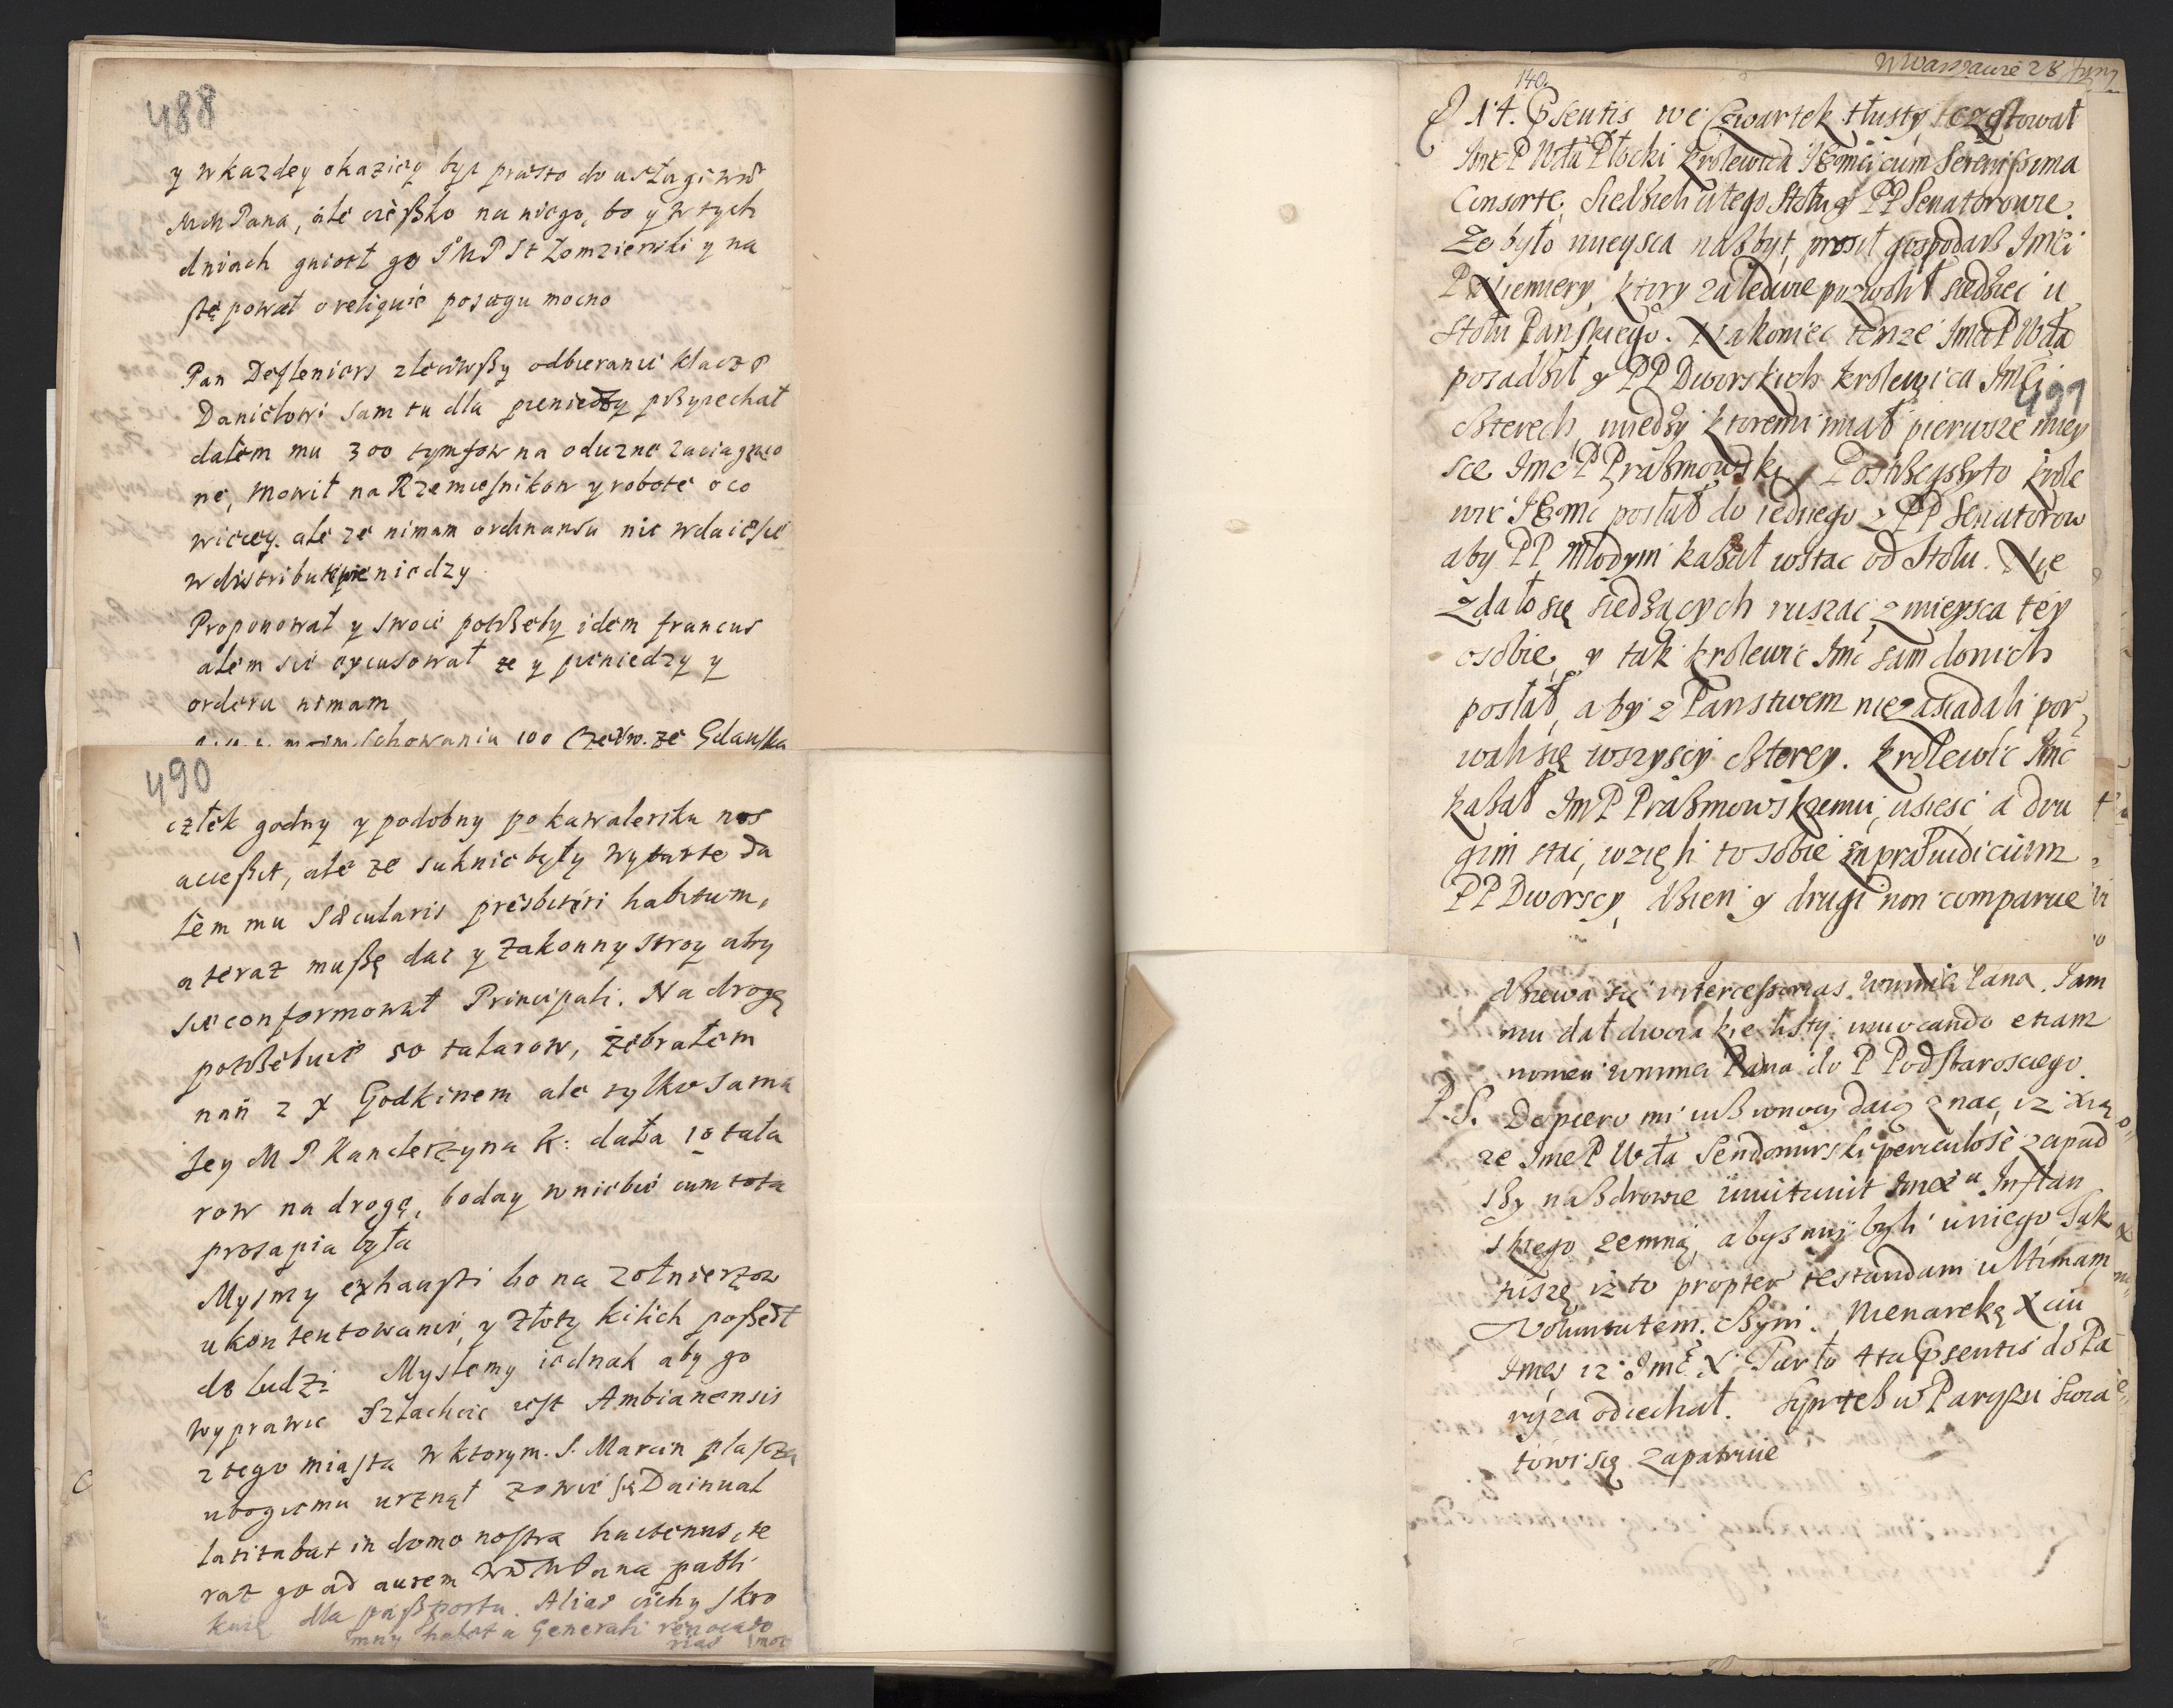 488
y w kazdey okaziey byc prosto do usługi wm
Mch Pana, ale cięßko na niego, bo y w tych
dniach gniotł go JMP St Zomzierski y na
stępował o reliquie posagu mocno
Pan Desteniers zleciwßy odbieranie klacz P
Danielowi sam tu dla pieniedzy przyiechał
dałem mu 300 tymfow na odurzne zaciągnio
ne, mowił na Rzemiesnikow y robote o co
wiecey. ale ze nimam ordinansu nie wdaie sie
w distribute pieniedzy
Proponował y swoie potrzeby idem francus
alem sie excusował ze y pieniedzy y
orderu nimam
schowaniu 100 Czerw. ze Gdanska
490
człek godny y podobny po kawalersku nos
acceßit, ale ze suknie były wytarte da
łem mu sæcularis presbiteri habitum,
a teraz mußę dac y zakonny stroy aby
sie conformował Principali. Na drogę
potrzebuie 50 talarow, żebrałem
nań z X Godkinem ale tylko sama
Jey M P Kanclerzyna K: dała 10 tala
row na drogę, boday w niebie cum tota
prosapia była
Mysmy exhausti bo na zołnierzow
ukontentowanie, y złoty kilich poßedł
do ludzi Myslemy iednak aby go
wyprawic Szlachcic iest Ambianensis
z tego miasta w ktorym. S. Marcin płaszcza
ubogiemu urznął zowie się Dainual
latitabat in domo nostra hactenus, te
raz go ad aurem wm M Pana publi
kuię dla paßportu. Alias cichy skro
mny habet a Generali revocato
rias
W Warszawie 28 Juny
140
D 14. Psentis we Czwartek tłusty częstował
Jmc P Wda Płocki krolewica JEmci cum Serenissima
Consorte, siedzieli u tego stołu y PP Senatorowie.
Ze było mieysca nazbyt, prosił gospodarz Jmći
P Niemiery, ktory zaledwie pozwolił siedziec u
stołu Panskiego. Nakoniec tenze Jmc P Wda
posadził y PP Dworskich krolewica Jmći
491
czterech, miedzy ktoremi miał pierwsze miey
sce Jmć P Prażmowski, Postrzegszy to krole
wic JEmć posłał do iednego z PP Senatorow
aby PP Młodym kazał wstac od stołu. Nie
zdało się siedzących ruszac z mieysca tey
osobie, y tak krolewic Jmć sam do nich
posłał, aby z Panstwem nie zasiadali por,
wali się wszyscy czterey. krolewic Jmć
kazał Jm P Prażmowskiemu, usiesc a dru
gim stac, wzięli to sobie in præiudicium
PP Dworscy, dzien y drugi non comparue
dziewa się intercessorias wmmci Pana. Jam
mu dał dwoiakie listy invocando etiam
nomen wmmci Pana do P Podstarosciego
P.S. Dopiero mi iuß w nocy daią znac, iz xią
ze Jmc P Wda Sendomirski periculose zapad
szy na zdrowie invitavit Jmci Instan
skiego ze mną, abysmy byli u niego Tak
tuszę iz to propter testandam ultimam
voluntatem. Czyni
Jmci iz Jmć X. Tarło 4ta Psentis do Pa
ryza odiechał. Syn tez w Paryzu swia
towi się zapatruie